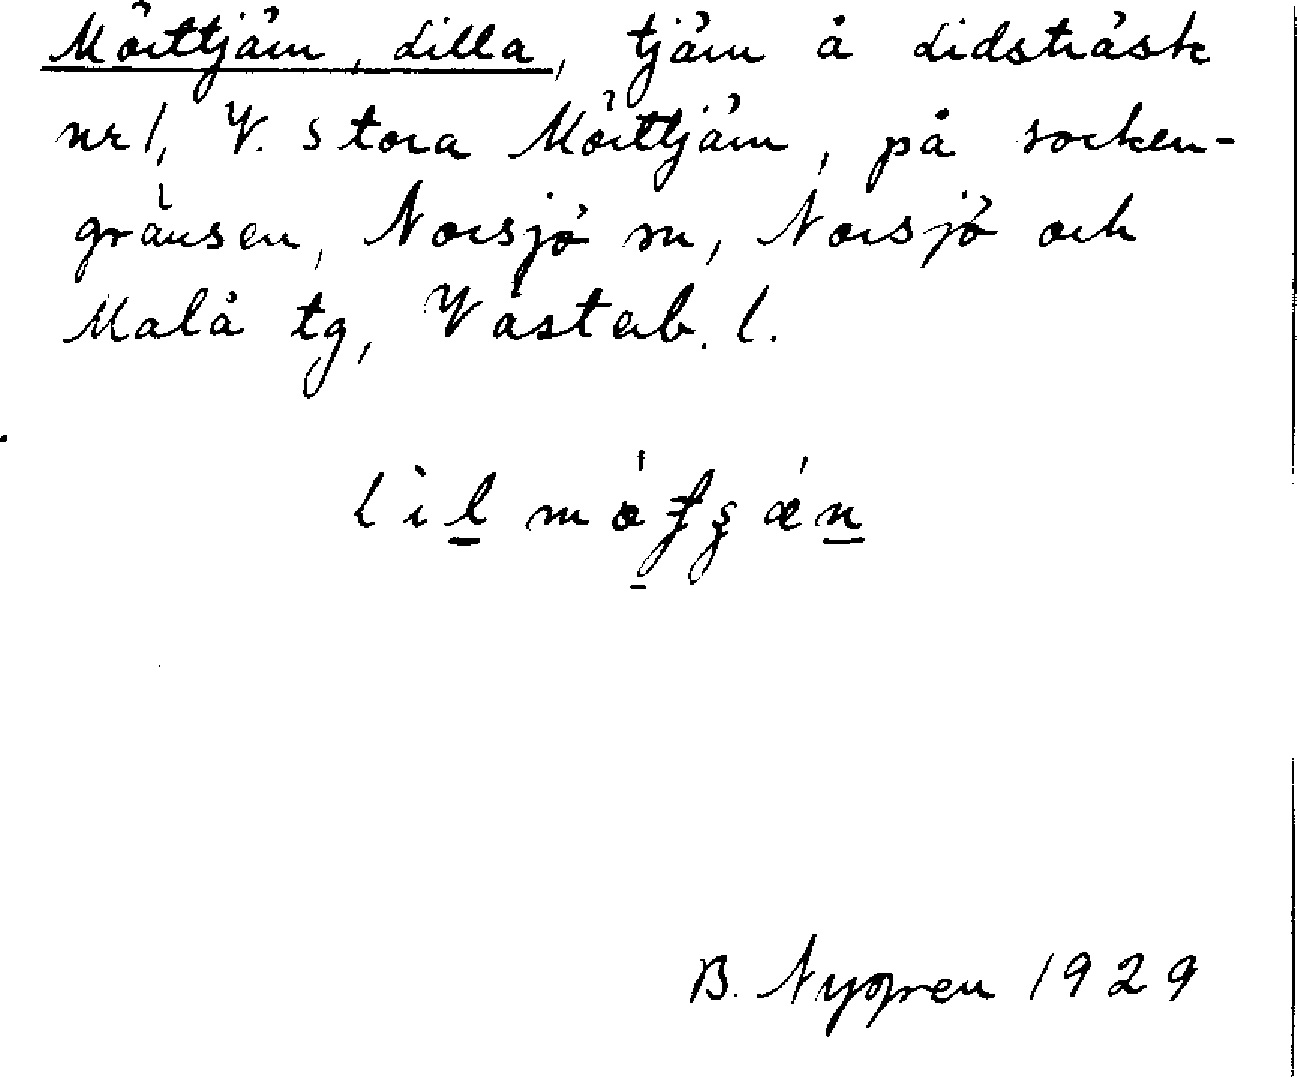 Mörttjärn, Lilla, tjärn å Lidsträsk
nr 1, V. Stora Mörttjärn, på socken-
gränsen, Norsjö sn, Norsjö och
Malå tg, Västerb. l.
B. Nygren 1929